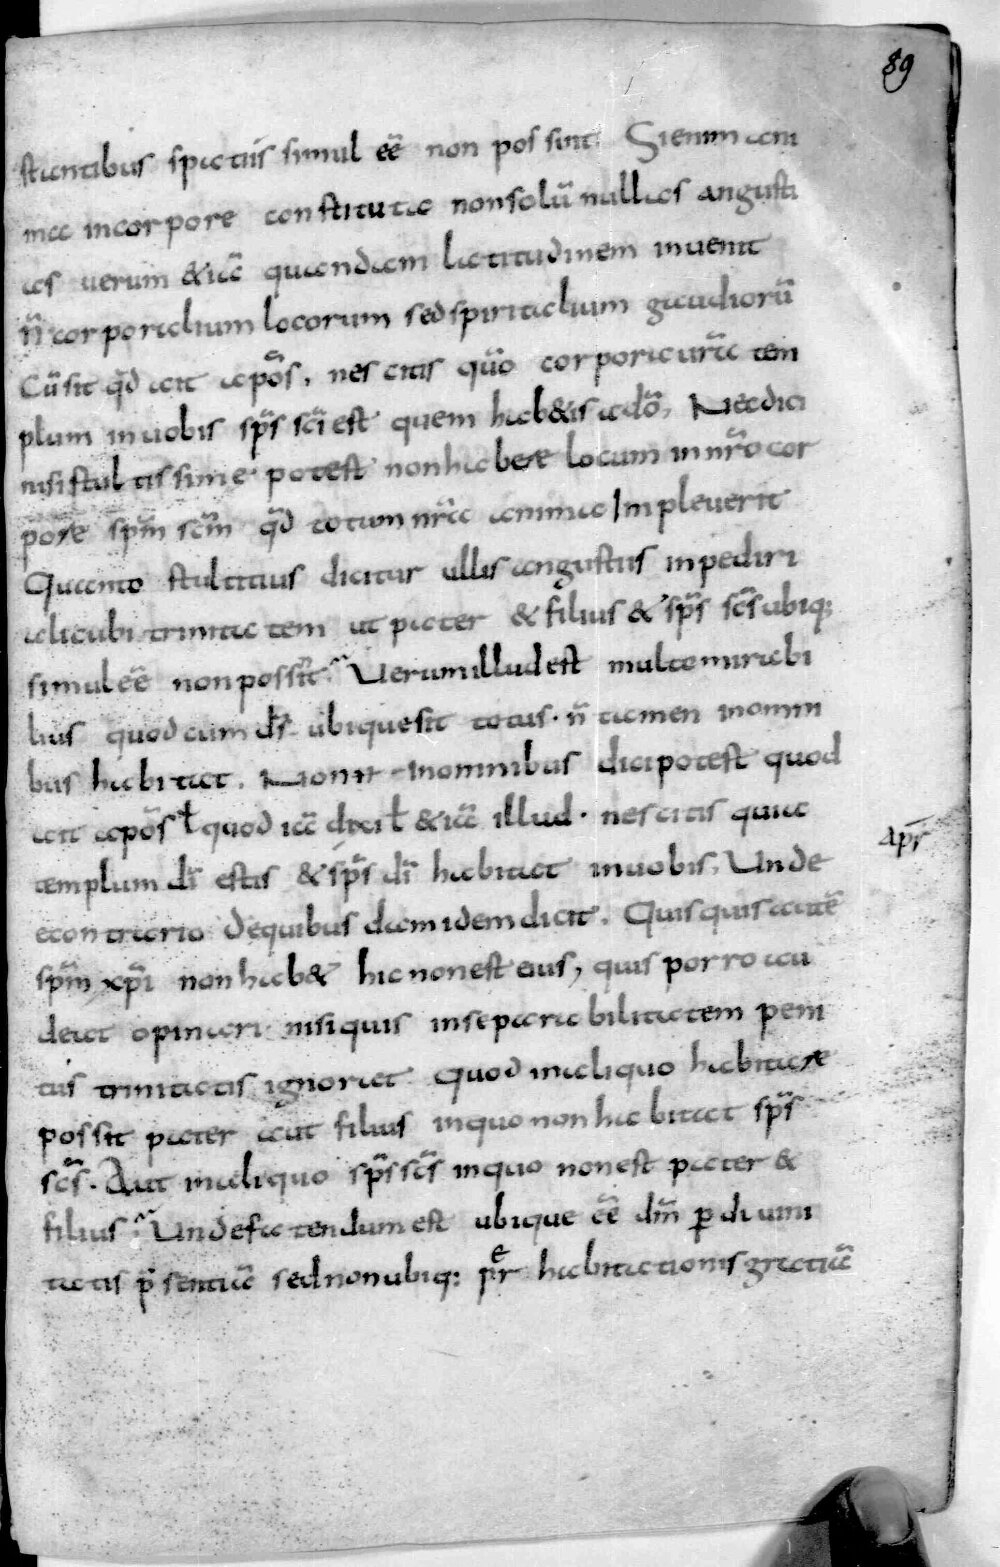 89
stantibus spatiis simul eē non possint. Si enim ani
ma in corpore constituta non solū nullas angusti
as verum & iā quandam latitudinem invenit
n̄ corporalium locorum sed spiritalium gaudiorū
Cū sit qđ ait apōs, nescitis quō corpora urā tem
plum in vobis sp̄s sc̄i est quem hab&is a dō, Nec dici
nisi stultissime potest non habere locum in nrō cor
pore sp̄m sc̄m qđ totum nrā anima Impleverit
Quanto stultius dicitur ullis angustiis inpediri
alicubi trinitatem ut pater & filius & sp̄s sc̄s ubiq;
simul eē non possīt. Verum illud est multo mirabi
lius quod cum ds̄ ubique sit totus · n̄ tamen in omni
bus habitat. Non in omnibus dici potest quod
ait apōs ł quod iā dixi ł & iā illud · nescitis quia
templum dī estis & sp̄s dī habitat in vobis, Unde
Aps̄
econtrario de quibusdam idem dicit. Quisquis autē
sp̄m xp̄i non hab& hic non est eius, quis porro au
deat opinari nisi quis inseparabilitatem peni
tus trinitatis ignorat quod in aliquo habitare
possit pater aut filius in quo non habitat sp̄s
sc̄s. Aut in aliquo sp̄s sc̄s in quo non est pater &
filius Unde fatendum est ubique eē dm̄ p divini
tatis p̄sentiā sed non ubiq; per habitationis gratiā